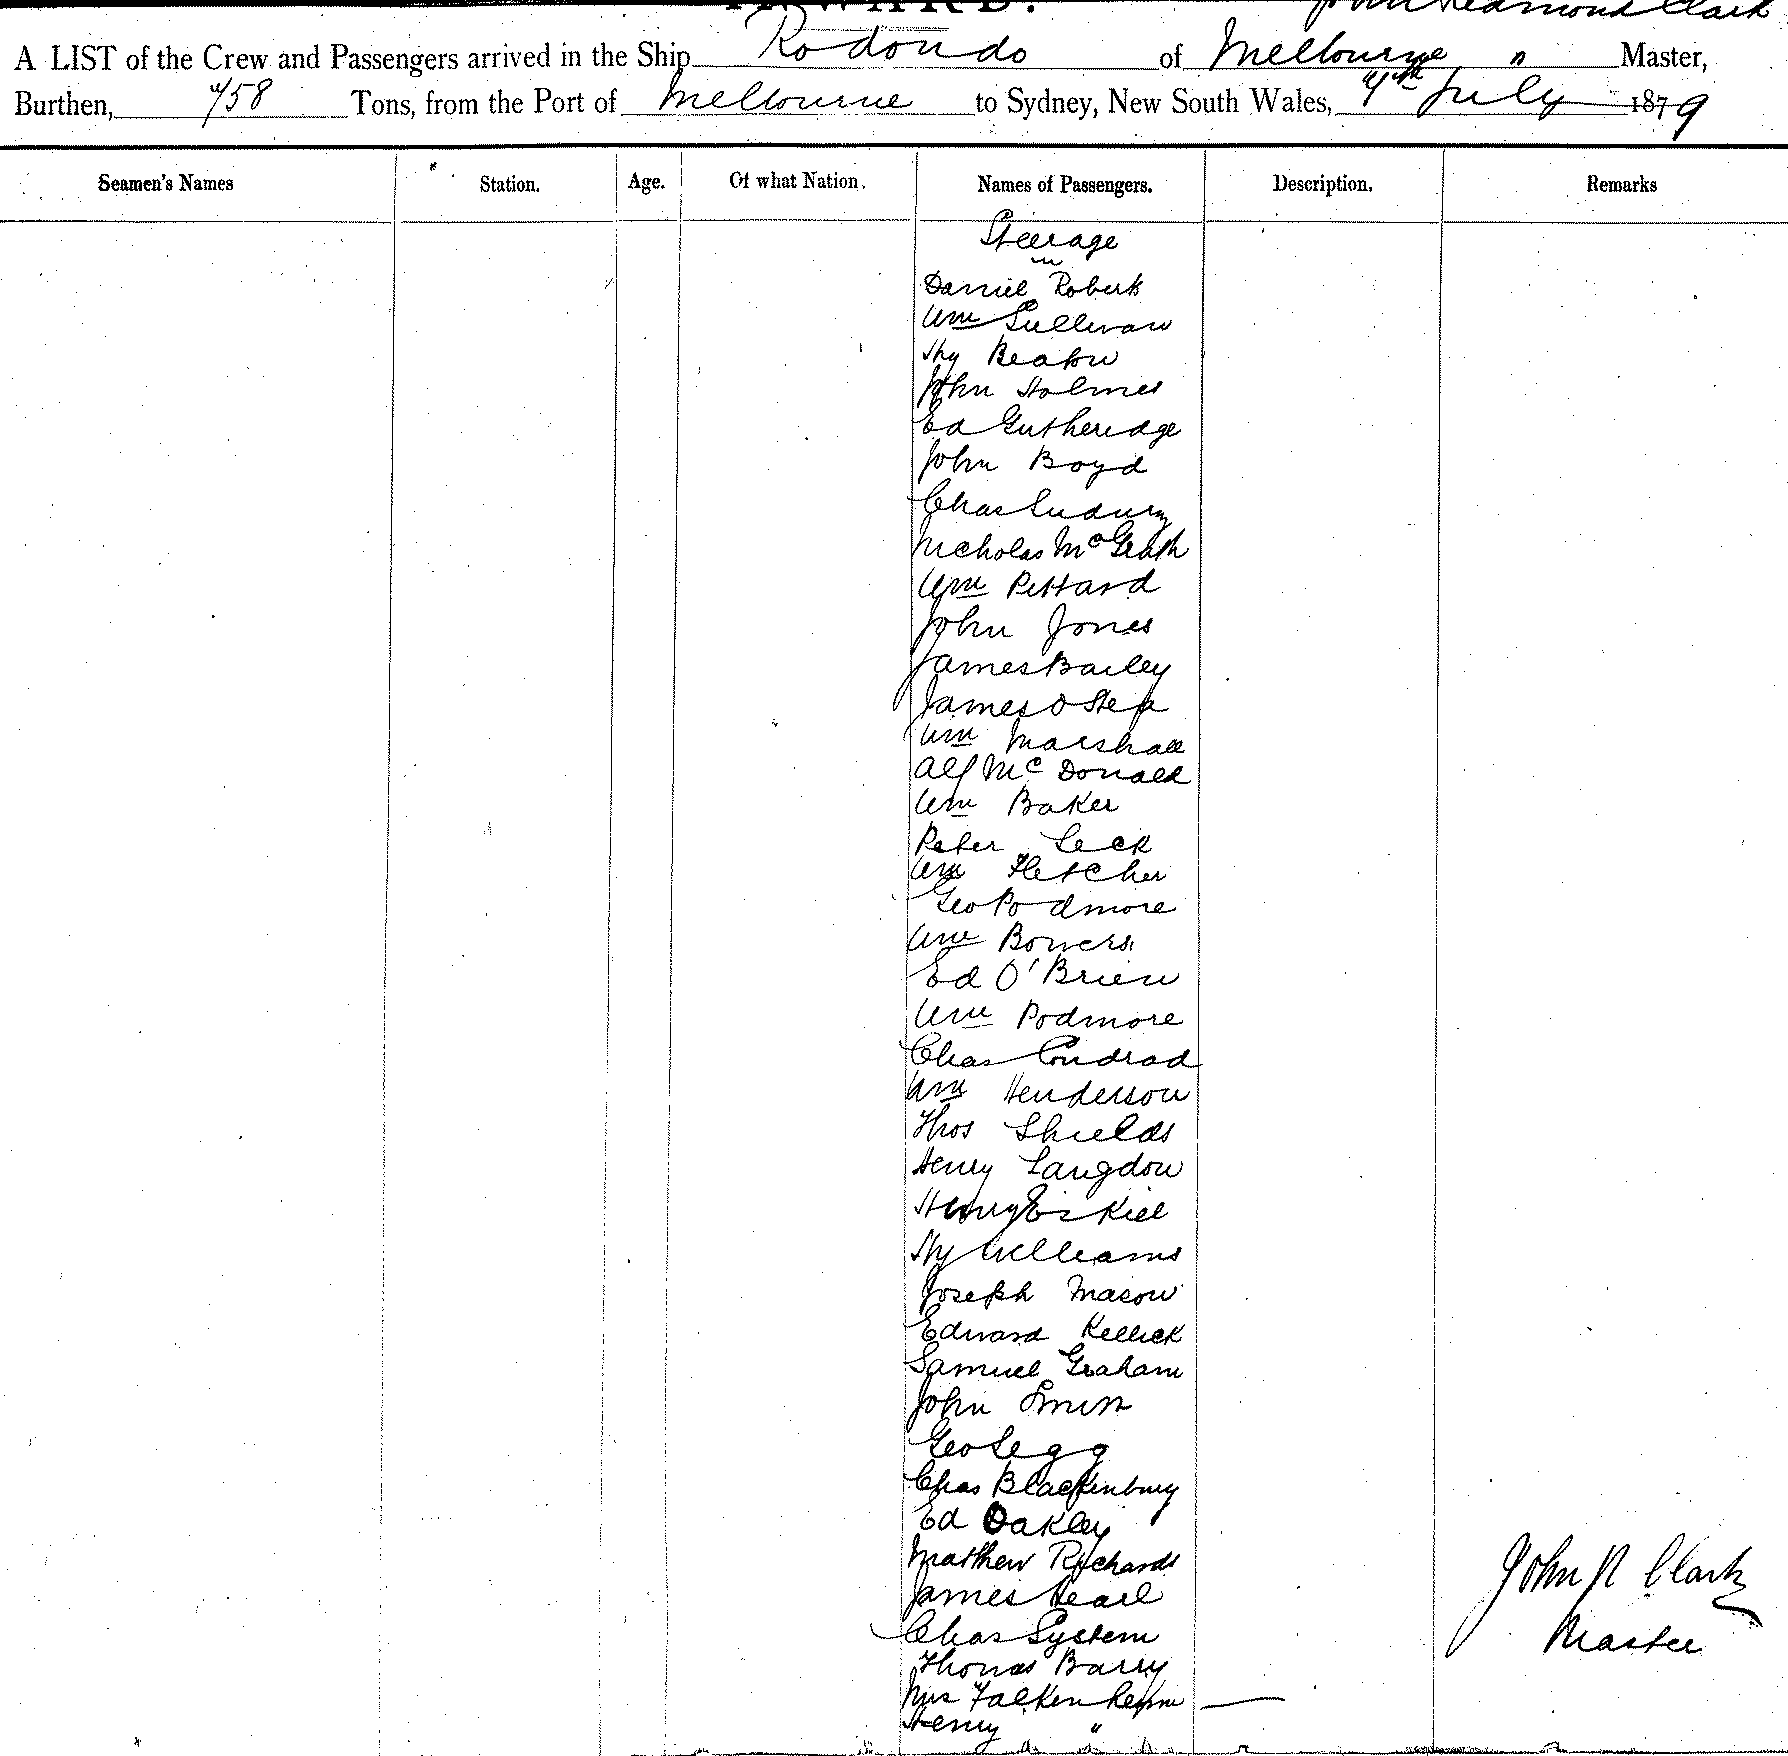 John Redmond Clark
A LIST of the Crew and Passengers arrived in the Ship Rodondo of Melbourne " Master,
Burthen, 758 Tons, from the Port of Melbourne to Sydney, New South Wales, July 1879
Seamen's Names Station. Age. Of what Nation. Names of Passengers. Description. Remarks
Steerage
Daniel Roberts
Wm Sullivan
Hy Beaton
John Holmes
Ed Gutheridge
John Boyd
Chas
Nicholas McGrath
Wm Pettard
John Jones
James Bailey
James
Wm Marshall
Alf McDonald
Wm Baker
Peter Leck
Wm Fletcher
Geo Podmore
Wm Bowers
Ed O'Brien
Wm Podmore
Chas Condrad
Wm Henderson
Thos Shields
Henry Langdon
Henry Eskiel
Hy Williams
Joseph Mason
Edward Kellick
Samuel Graham
John Smith
Geo Legg
Chas Blackenbury
Ed Oakley
Matthew Richards
James Hearl
Chas System
Thomas Barry
Mrs
Henry "
John R Clark
Master